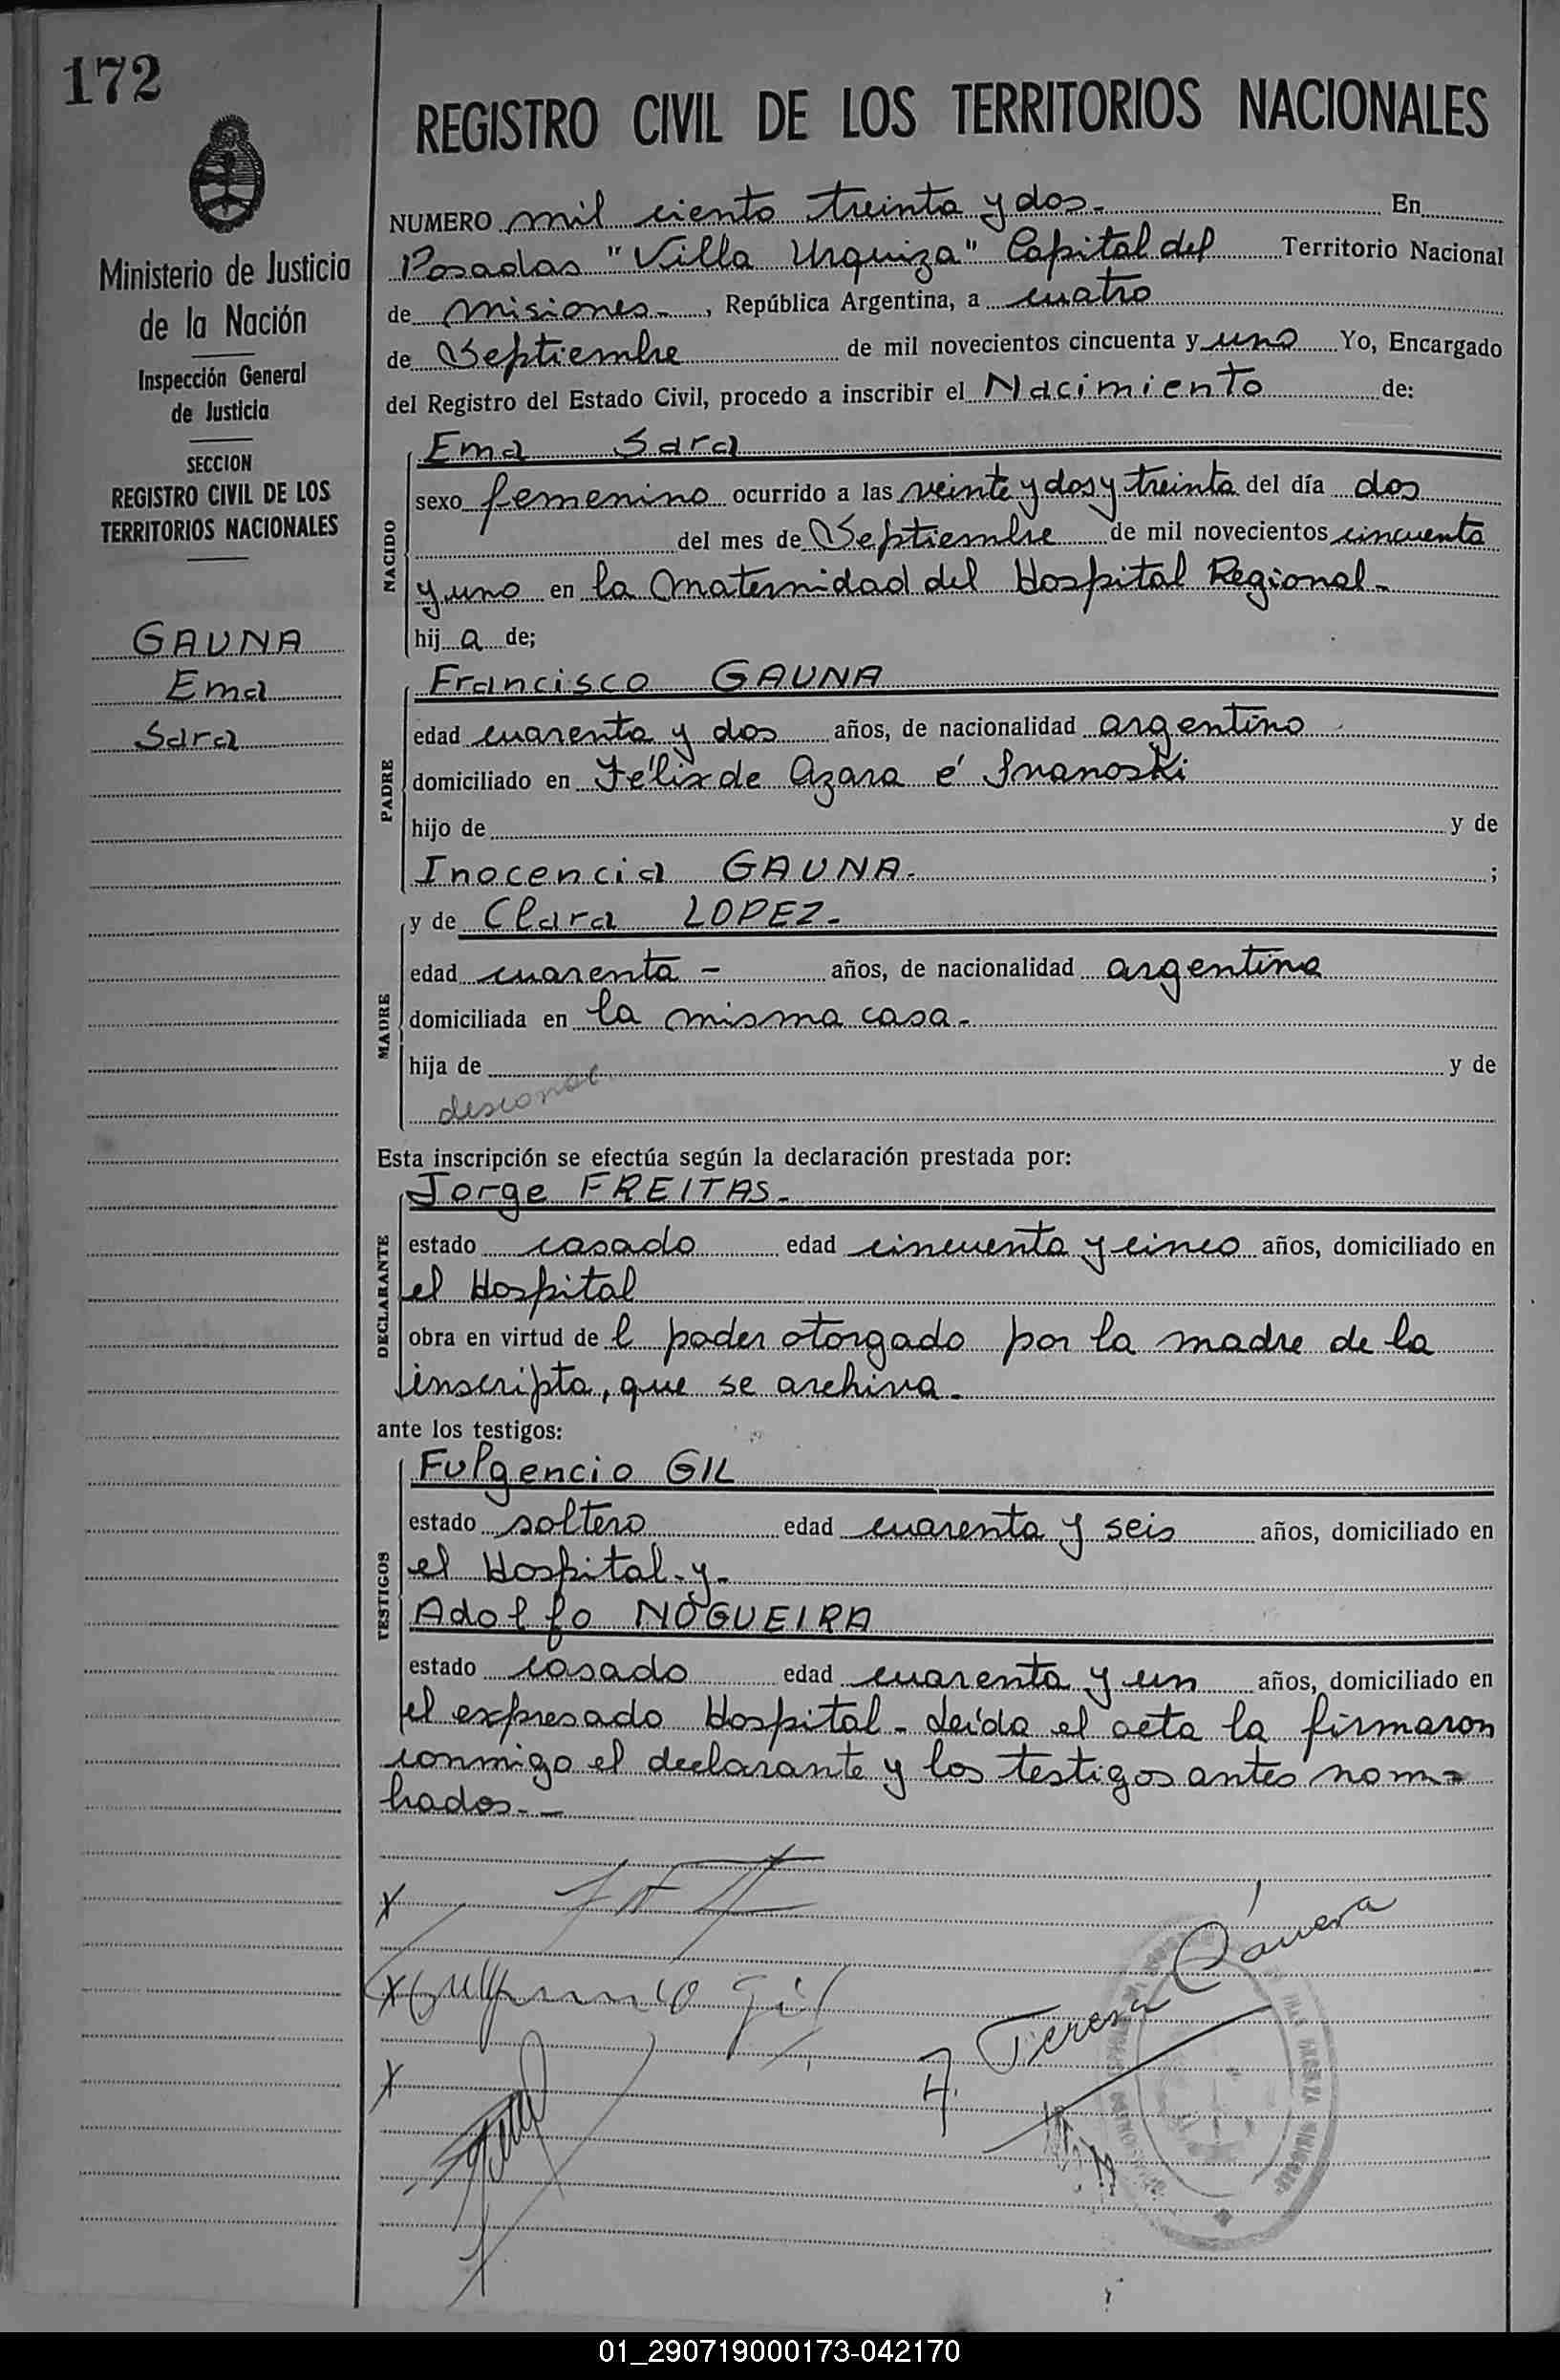 172
REGISTRO CIVIL DE LOS TERRITORIOS NACIONALES
Ministerio de Justicia
de la Nación
Inspección General
de Justicia
SECCION
REGISTRO CIVIL DE LOS
TERRITORIOS NACIONALES
GAUNA
Ema
Sara
NUMERO mil ciento treinta y dos.- En
Posadas "Villa Urquiza" Capital del Territorio Nacional
de Misiones.-, República Argentina, a cuatro
de Septiembre de mil novecientos cincuenta y uno Yo, Encargado
del Registro del Estado Civil, procedo a inscribir el Nacimiento de:
NACIDO
Ema Sara
sexo femenino ocurrido a las veinte y dos y treinta del día dos
del mes de Septiembre de mil novecientos cincuenta
y uno en la Maternidad del Hospital Regional.-
hij a de;
PADRE
Francisco GAUNA
edad cuarenta y dos años, de nacionalidad argentino
domiciliado en Félix de Azara é Ivanoski
hijo de y de
Inocencia GAUNA. ;
MADRE
y de Clara LOPEZ.-
edad cuarenta - años, de nacionalidad argentina
domiciliada en la misma casa.-
hija de y de
Esta inscripción se efectúa según la declaración prestada por:
DECLARANTE
Jorge FREITAS.-
estado casado edad cincuenta y cinco años, domiciliado en
el Hospital
obra en virtud de l poder otorgado por la madre de la
inscripta, que se archiva.-
ante los testigos:
TESTIGOS
Fulgencio GIL
estado soltero edad cuarenta y seis años, domiciliado en
el Hospital.y.-
Adolfo NOGUEIRA
estado casado edad cuarenta y un años, domiciliado en
el expresado Hospital.- Leída el acta la firmaron
conmigo el declarante y los testigos antes nom=
brados.-
x
x Fulgencio Gil
x
Teresa
01_290719000173-042170